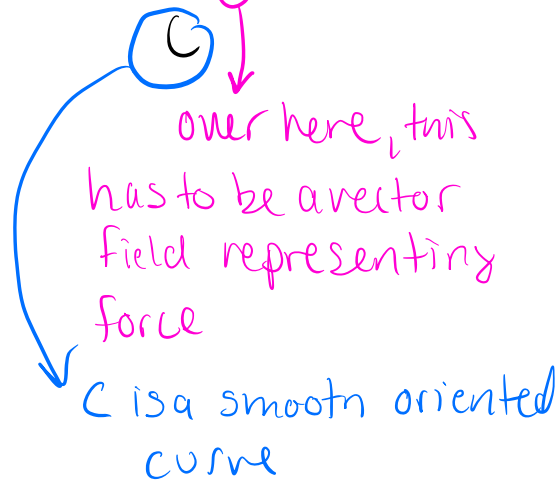 C
over here, this
has to be a vector
field representing
force
C is a smooth oriented
curve